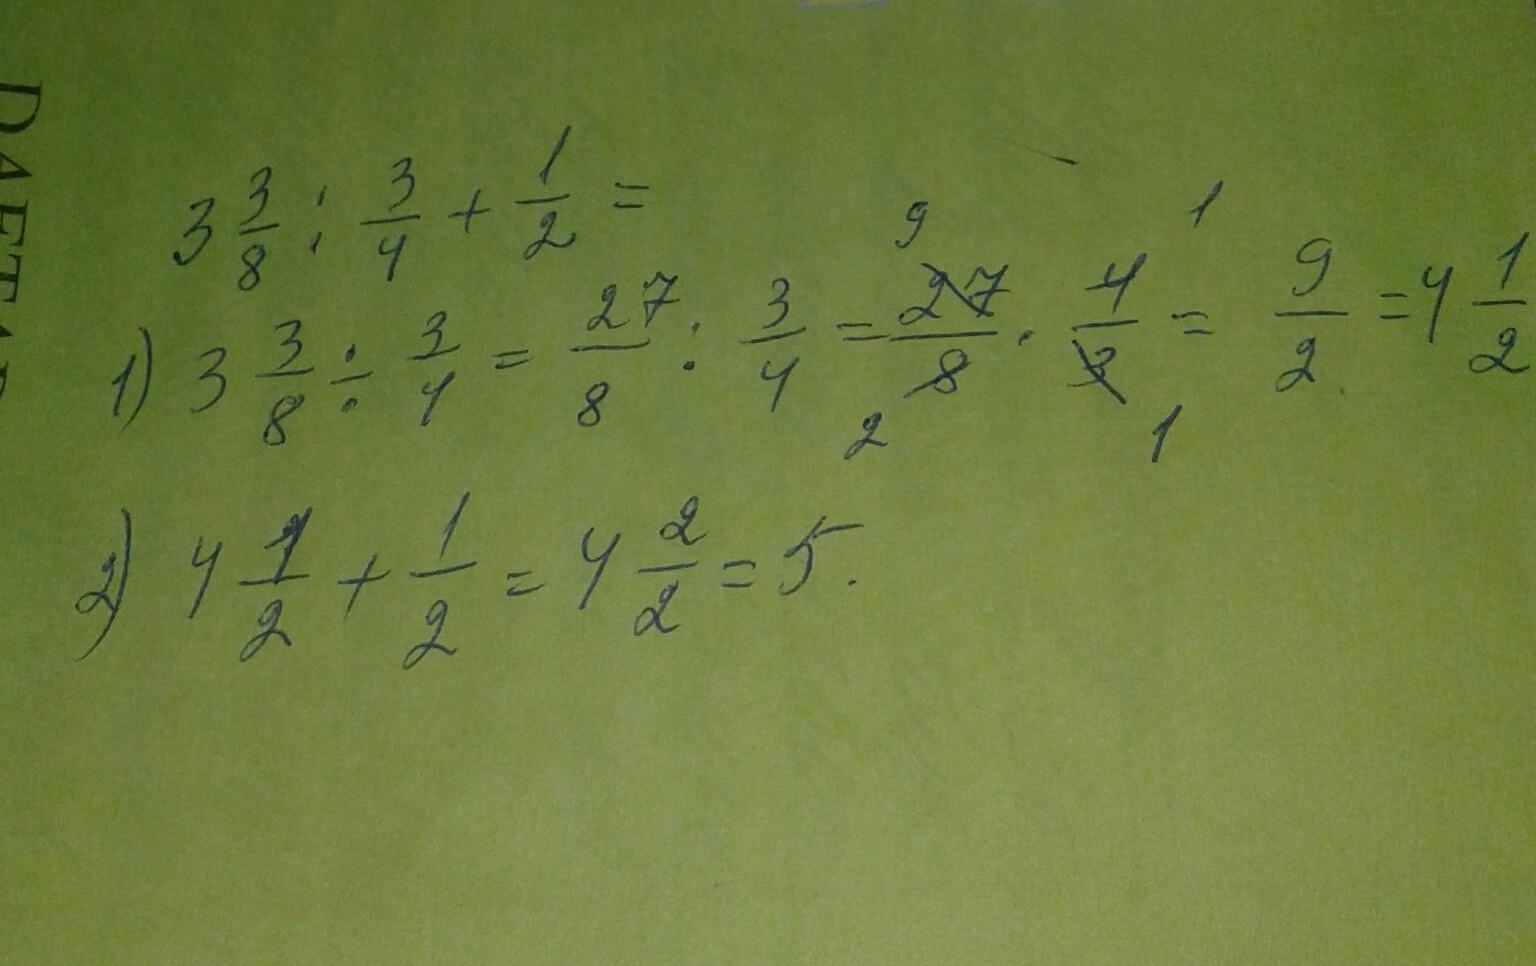 3 3/8 : 3/4 + 1/2 =
1) 3 3/8 ÷ 3/4 = 27/8 : 3/4 = 27/8 · 4/3 = 9/2 = 4 1/2
9 1
2 1
2) 4 1/2 + 1/2 = 4 2/2 = 5.